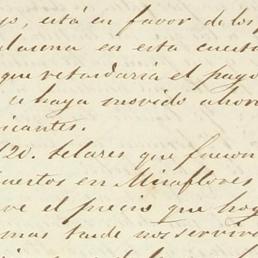 jo, está en favor de los
alguna en esta cuesta
que retardaria el pago
e haya movido ahor
icantes.
120. telares que fueron
uertos en Miraflores
ve el precio que hoy
mas tarde nos serviri